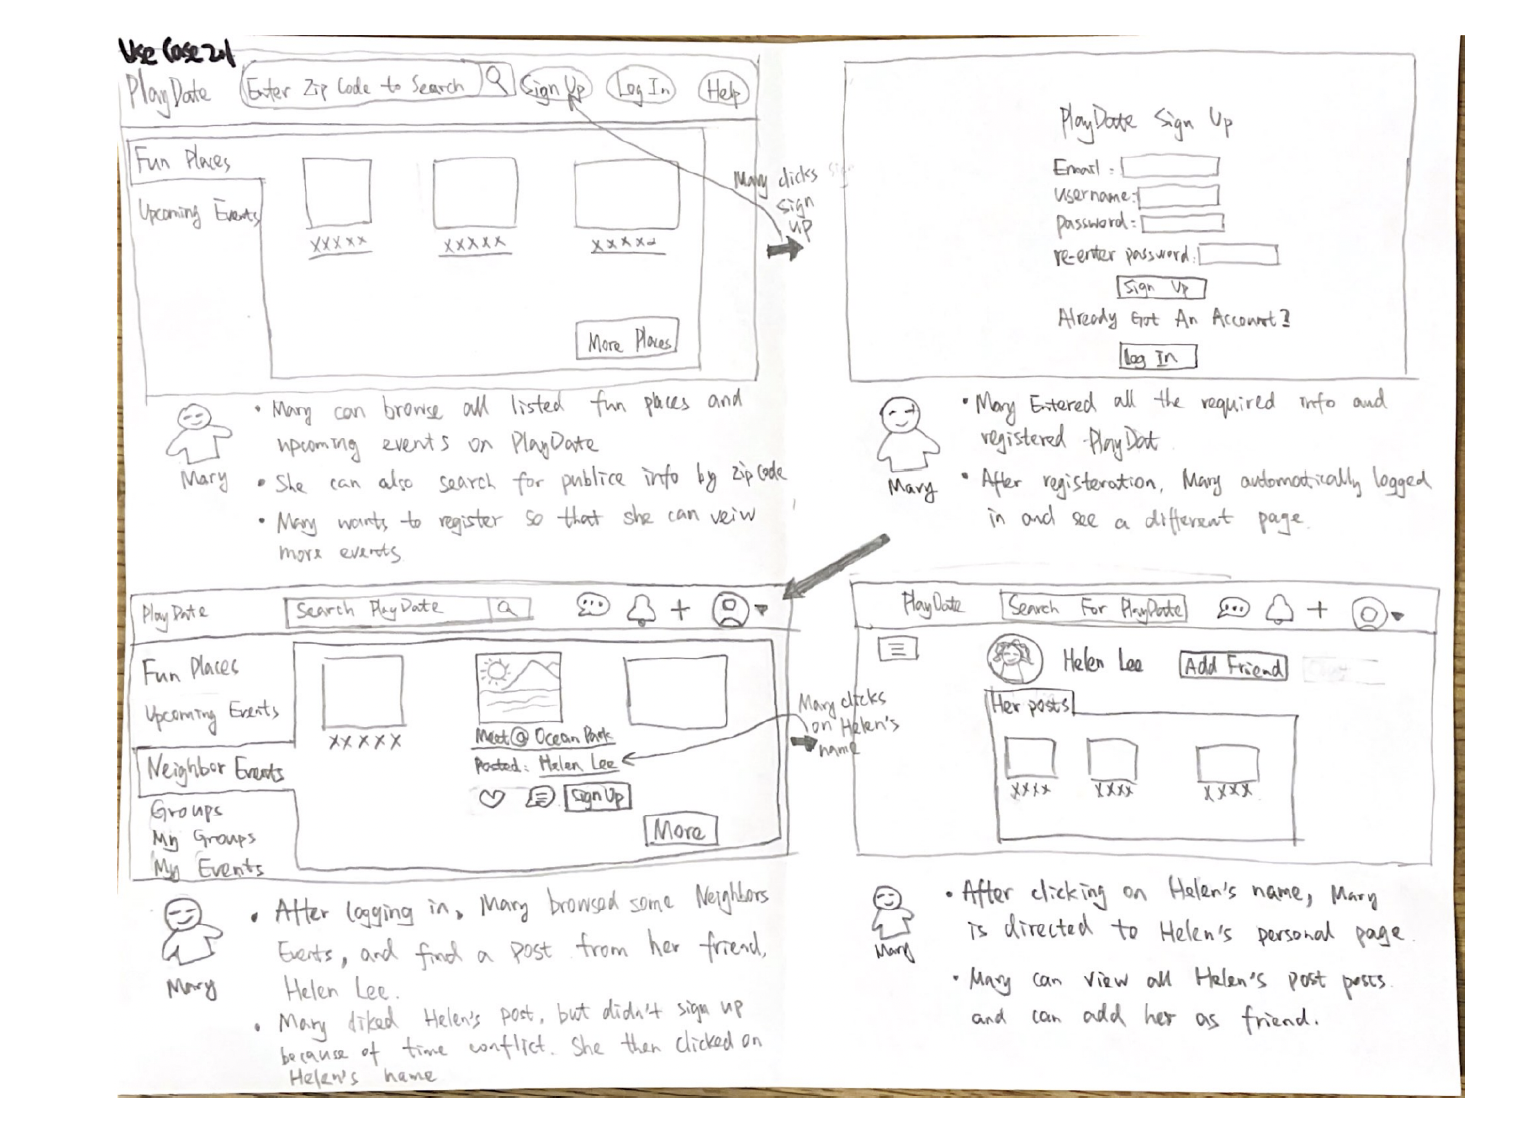 Use Case 2.1
PlayDate
Enter Zip Code to Search
Sign Up
Log In
Help
Fun Places
Upcoming Events
xxxxx
xxxxx
xxxxx
More Places
Mary clicks
sign
up
Mary
• Mary can browse all listed fun places and
upcoming events on PlayDate
• She can also search for publice info by zip code
• Mary wants to register so that she can veiw
more events
PlayDate Sign Up
Email:
Username:
password:
re-enter password:
Sign Up
Already Got An Account?
Log In
Mary
• Mary Entered all the required info and
registered PlayDat
• After registeration, Mary automatically logged
in and see a different page.
PlayDate
Search PlayDate
Fun Places
Upcoming Events
Neighbor Events
Groups
My Groups
My Events
xxxxx
Meet@ Ocean Park
Posted: Helen Lee
Sign Up
More
Mary clicks
on Helen's
name
Mary
• After logging in, Mary browsed some Neighbors
Events, and find a post from her friend,
Helen Lee.
• Mary liked Helen's post, but didn't sign up
because of time conflict. She then clicked on
Helen's name
PlayDate
Search For PlayDate
Helen Lee
Add Friend
Her posts
xxxx
xxxx
xxxx
Mary
• After clicking on Helen's name, Mary
is directed to Helen's personal page.
• Mary can view all Helen's post posts
and can add her as friend.